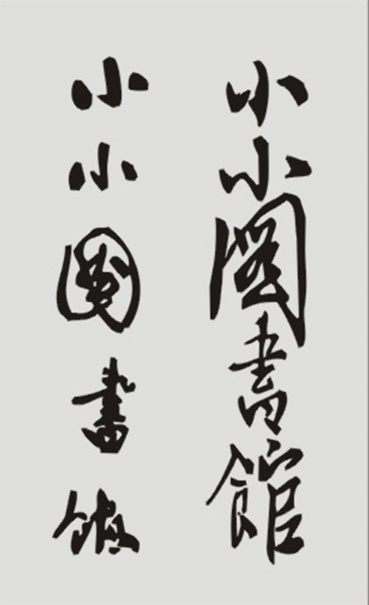 小小圖書館
小小圖書館